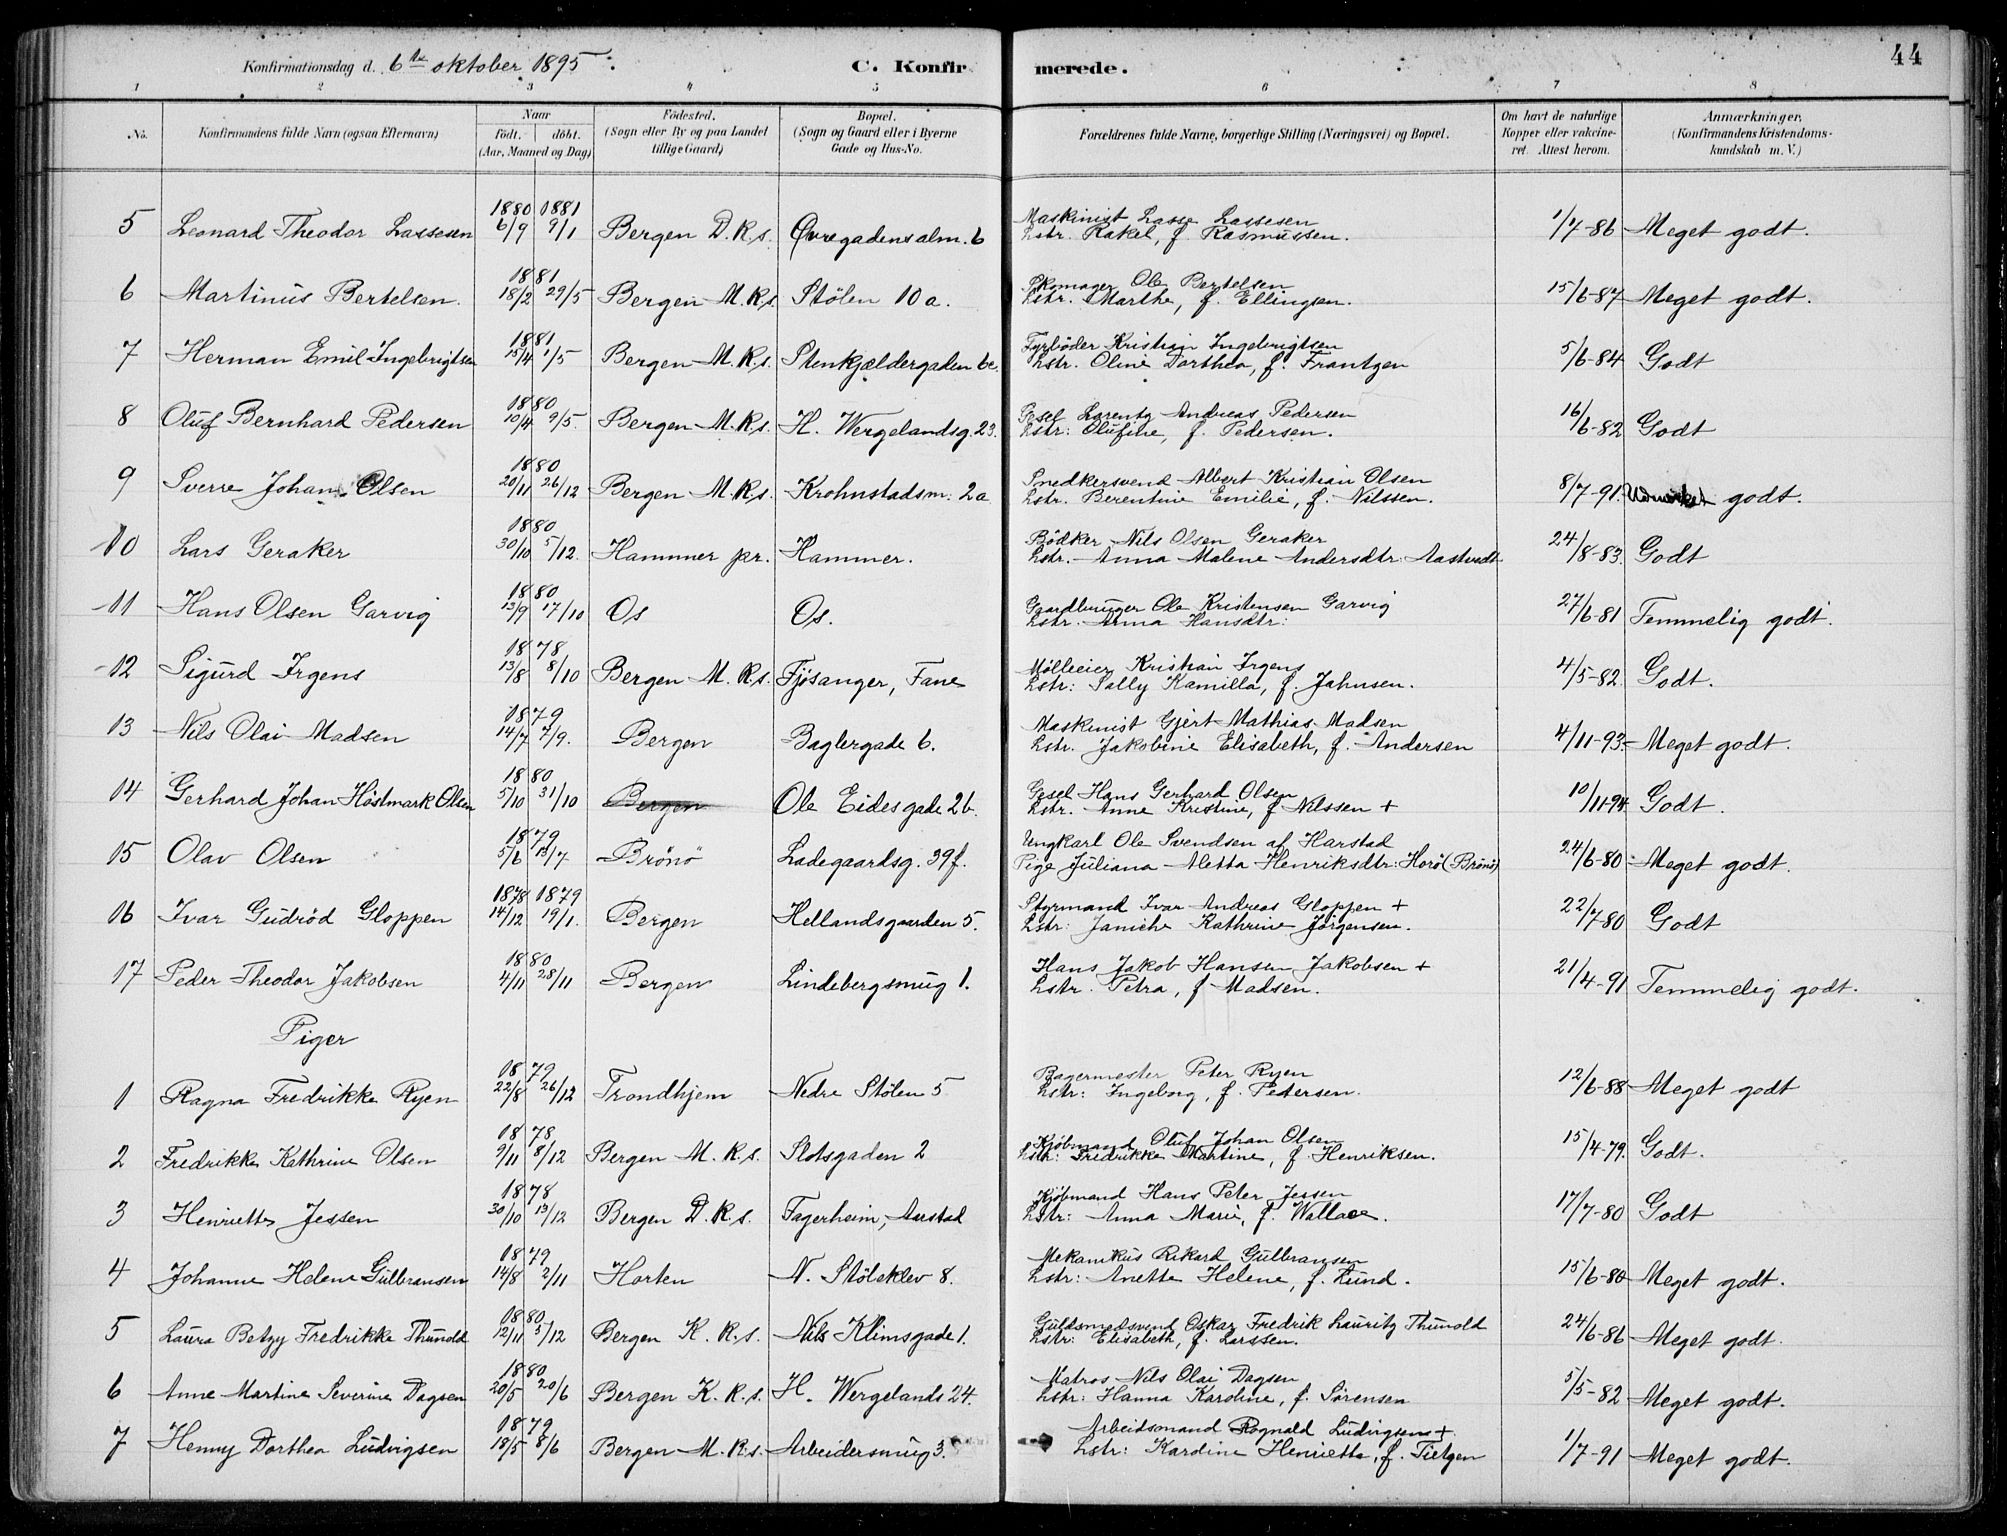 Konfirmationsdag d. 6te oktober 1895. C. Konfirmerede. 44
1 2 3 4 5 6 7 8
No. Konfirmandens fulde Navn (ogsaa Efternavn) Naar født. døbt. (Aar, Maaned og Dag) Fødested. (Sogn eller By og paa Landet tillige Gaard) Bopæl. (Sogn og Gaard eller i Byerne Gade og Hus-No. Forældrenes fulde Navne, borgerlige Stilling (Næringsvei) og Bopæl. Om havt de naturlige Kopper eller vakcineret. Attest herom. Anmærkninger. (Konfirmandens Kristendomskundskab m. V.)
1880 1881 Maskinist Lasse Lassesen
5 Leonard Theodor Lassesen 6/9 9/1 Bergen D.K.s. Øvregadens alm. 6 Hstr. Rakel, f. Rasmussen. 1/7-86 Meget godt.
1881 Skomager Ole Bertelsen
6 Martinus Bertelsen. 18/2 29/5 Bergen M.K.s. Stølen 10a. Hstr. Marthe, f. Ellingsen. 15/6-87 Meget godt.
1881 Fyrbøder Kristian Ingebrigtsen
7 Herman Emil Ingebrigtsen 15/4 1/5 Bergen M.K.s. Stenkjældergaden 6c. Hstr. Oline Dorthea, f. Frantzen 5/6-84 Godt
1880 Gesel Lorentz Andreas Pedersen
8 Oluf Bernhard Pedersen 10/4 9/5 Bergen M.K.s. H. Wergelandsg. 23. Hstr: Olufine, f. Pedersen. 16/6-82 Godt
1880 Snedkersvend Albert Kristian Olsen
9 Sverre Johan Olsen 20/11 26/12 Bergen M.K.s. Krohnstadsm. 2a Hstr. Berentine Emilie, f. Nilssen. 8/7-91. Udmerket godt.
1880 Bødker Nils Olsen Geraker
10 Lars Geraker 30/10 5/12. Hammer pr. Hammer. Hstr. Anna Malene Andersdtr. Aastvedt 24/8-83. Godt
1880 Gaardbruger Ole Kristensen Garvig
11 Hans Olsen Garvig 13/9 17/10 Os Os. Hstr. Anna Hansdtr: 27/6-81 Temmelig godt.
1878 Mølleeier Kristian Irgens
12 Sigurd Irgens 13/8 8/10 Bergen M.K.s. Fjøsanger, Fane Hstr: Sally Kamilla, f. Jahnsen. 4/5-82 Godt.
1879 Maskinist Gjert Mathias Madsen
13 Nils Olai Madsen 14/7 7/9. Bergen Baglergade 6. Hstr. Jakobine Elisabeth, f. Andersen 4/11-93. Meget godt.
1880 Gesel Hans Gerhard Olsen
14 Gerhard Johan Høstmark Olsen 5/10 31/10 Bergen Ole Eidesgade 26. Hstr. Anne Kristine, f. Nilssen + 10/11-94 Godt.
1879 Ungkarl Ole Svendsen af Harstad
15 Olav Olsen 5/6 13/7 Brønø Ladegaardsg. 39f. Pige Juliana Aletta Henriksdtr: Horø (Brønø) 24/6-80 Meget godt.
1878 1879 Styrmand Ivar Andreas Gloppen +
16 Ivar Gudrød Gloppen 14/12 19/1. Bergen Hellandsgaarden 5. Hstr: Janiche Kathrine Jørgensen. 22/7-80 Godt
1880 Hans Jakob Hansen Jakobsen +
17 Peder Theodor Jakobsen 4/11 28/11 Bergen Lindebergsmug 1. Hstr. Petra, f. Madsen. 21/4-91 Temmelig godt.
Piger
1879 Bagermester Peter Ryen
1 Ragna Fredrikke Ryen 22/8 26/12 Trondhjem Nedre Stølen 5 Hstr: Ingeborg, f. Pedersen. 12/6-88 Meget godt
1878 Kjøbmand Oluf Johan Olsen
2 Fredrikke Kathrine Olsen 9/11 8/12 Bergen M.K.s. Slotsgaden 2 Hstr: Fredrikke Martine, f. Henriksen. 15/4-79. Godt.
1878 Kjøbmand Hans Peter Jessen
3 Henriette Jessen 30/10 13/12 Bergen D.K.s. Fagerheim, Aarstad Hstr: Anna Marie, f. Wallace. 17/7-80 Godt
1879 Mekanikus Rikard Gulbransen
4 Johanne Helene Gulbransen 14/8 2/11 Horten N. Støleklev 8. Hstr: Anette Helene, f. Lund. 15/6-80 Meget godt.
1880 Guldsmedsvend Oskar Fredrik Lauritz Thunold
5 Laura Betzy Fredrikke Thunold 12/11 5/12 Bergen K.K.s. Nils Klimsgade 1. Hstr: Elisabeth, f. Larssen. 24/6-86 Meget godt.
1880 Matros Nils Olai Dagsen
6 Anne Martine Severine Dagsen 20/5 20/6 Bergen K.K.s. H. Wergelands 24. Hstr: Hanna Karoline, f. Sørensen 5/5-82 Meget godt.
1879 Arbeidsmand Rognald Ludvigsen +
7 Henny Dorthea Ludvigsen 18/5 8/6 Bergen M.K.s. Arbeidersmug 3. Hstr: Karoline Henriette, f. Tietgen 1/7-91 Meget godt.